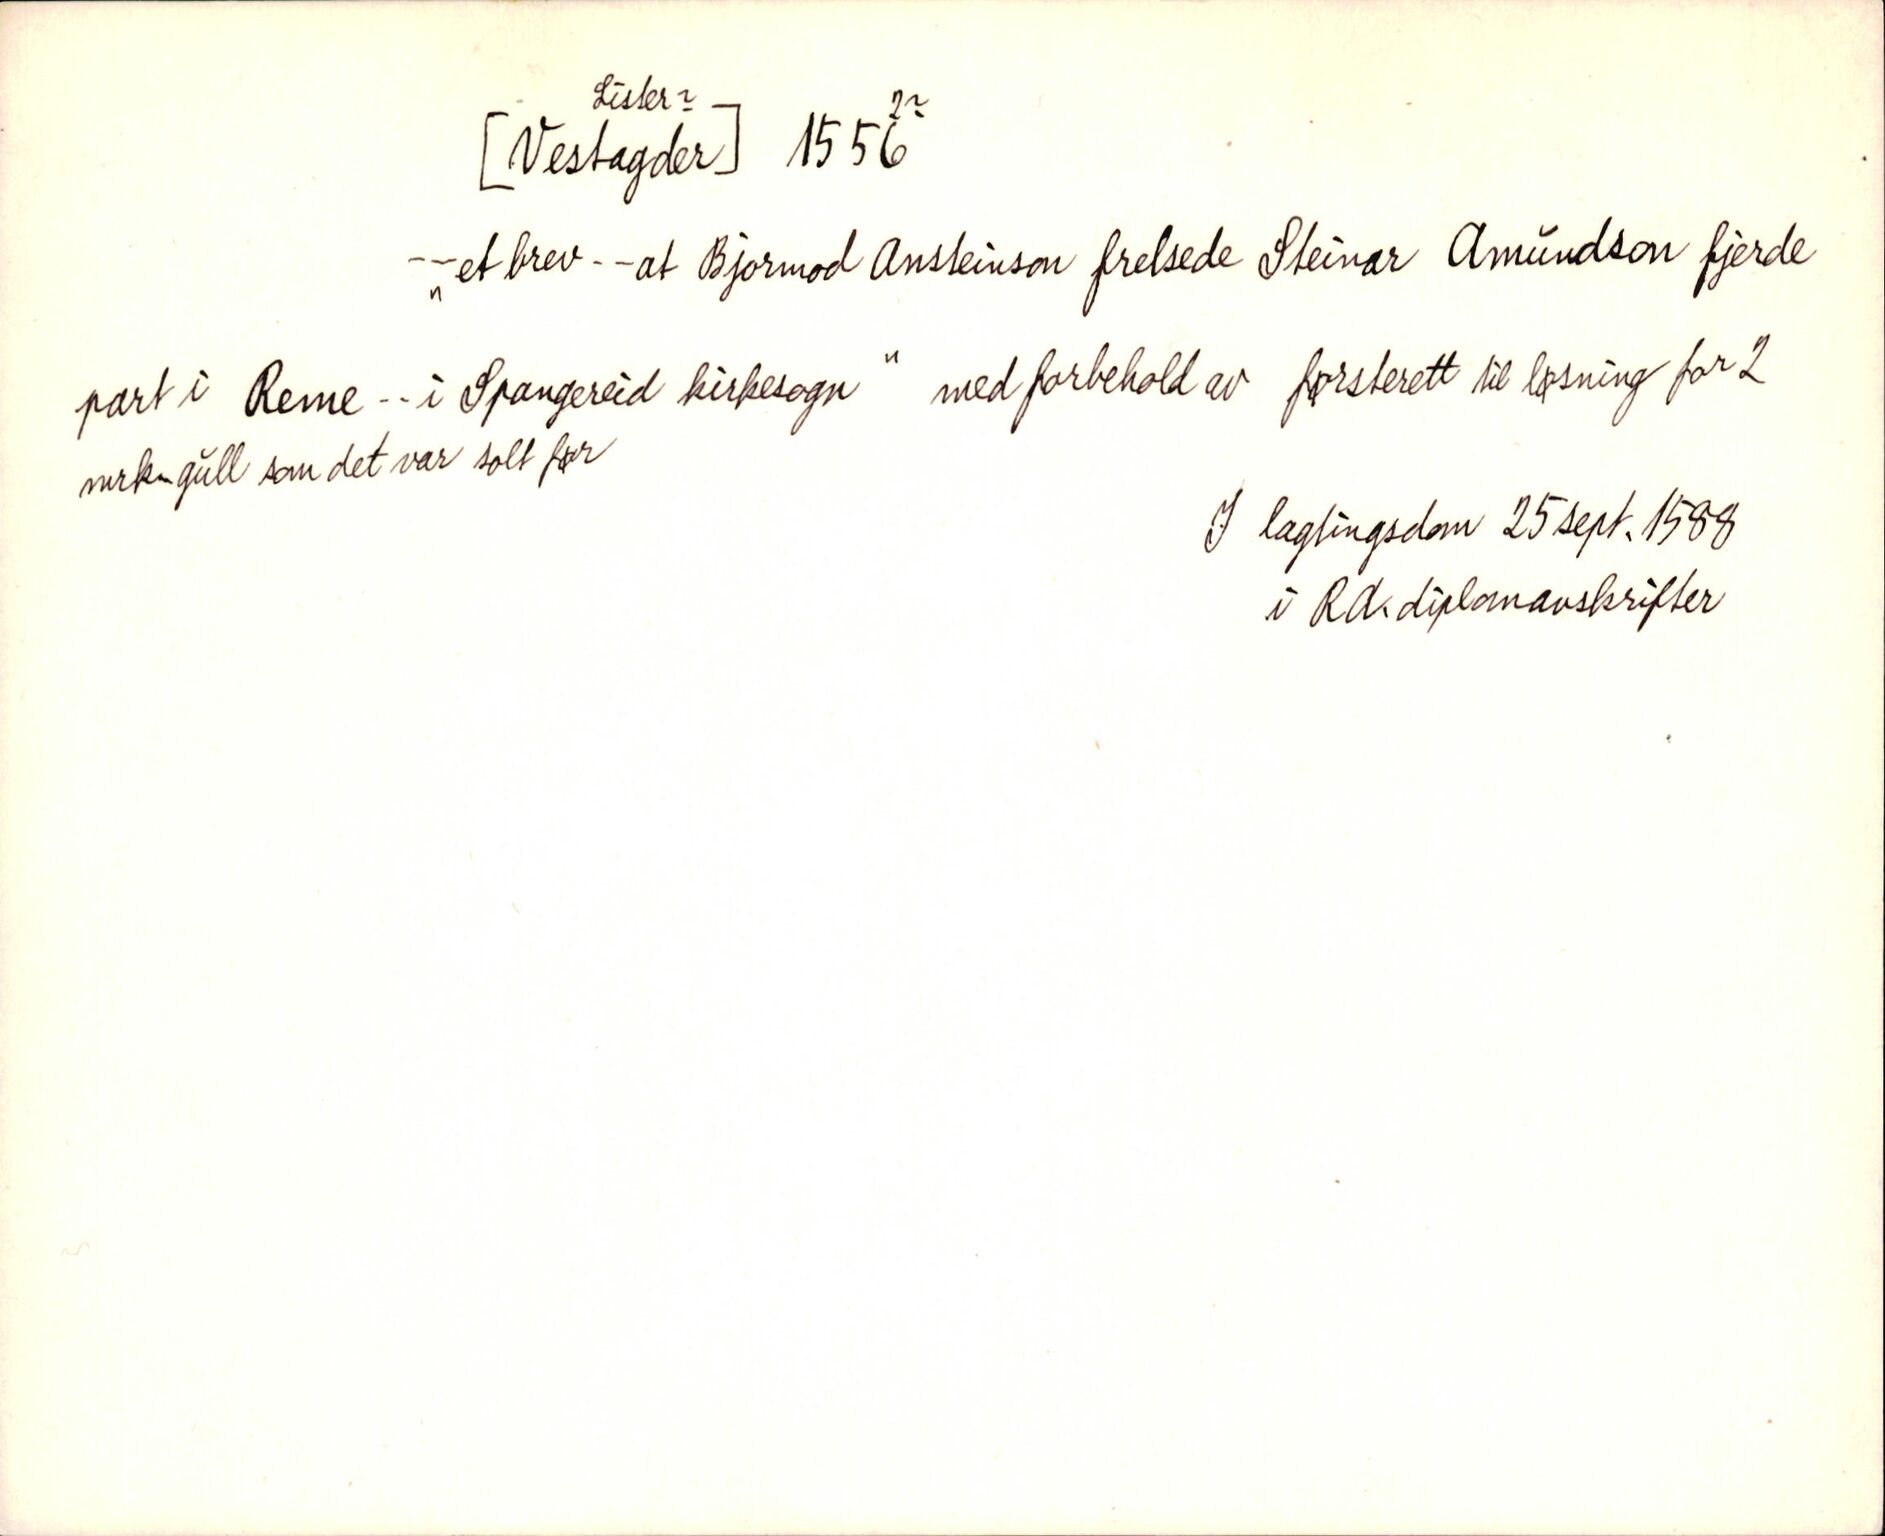 Lister?
[Vestagder] 1556 2?
-- „et brev -- at Bjormod Ansteinson frelsede Steinar Amundson fjerde
part i Reme -- i Spangereid kirkesogn" med forbehold av førsterett til løsning for 2
mrk gull som det var solt før
I lagtingsdom 25 sept. 1588
i RA. diplomavskrifter